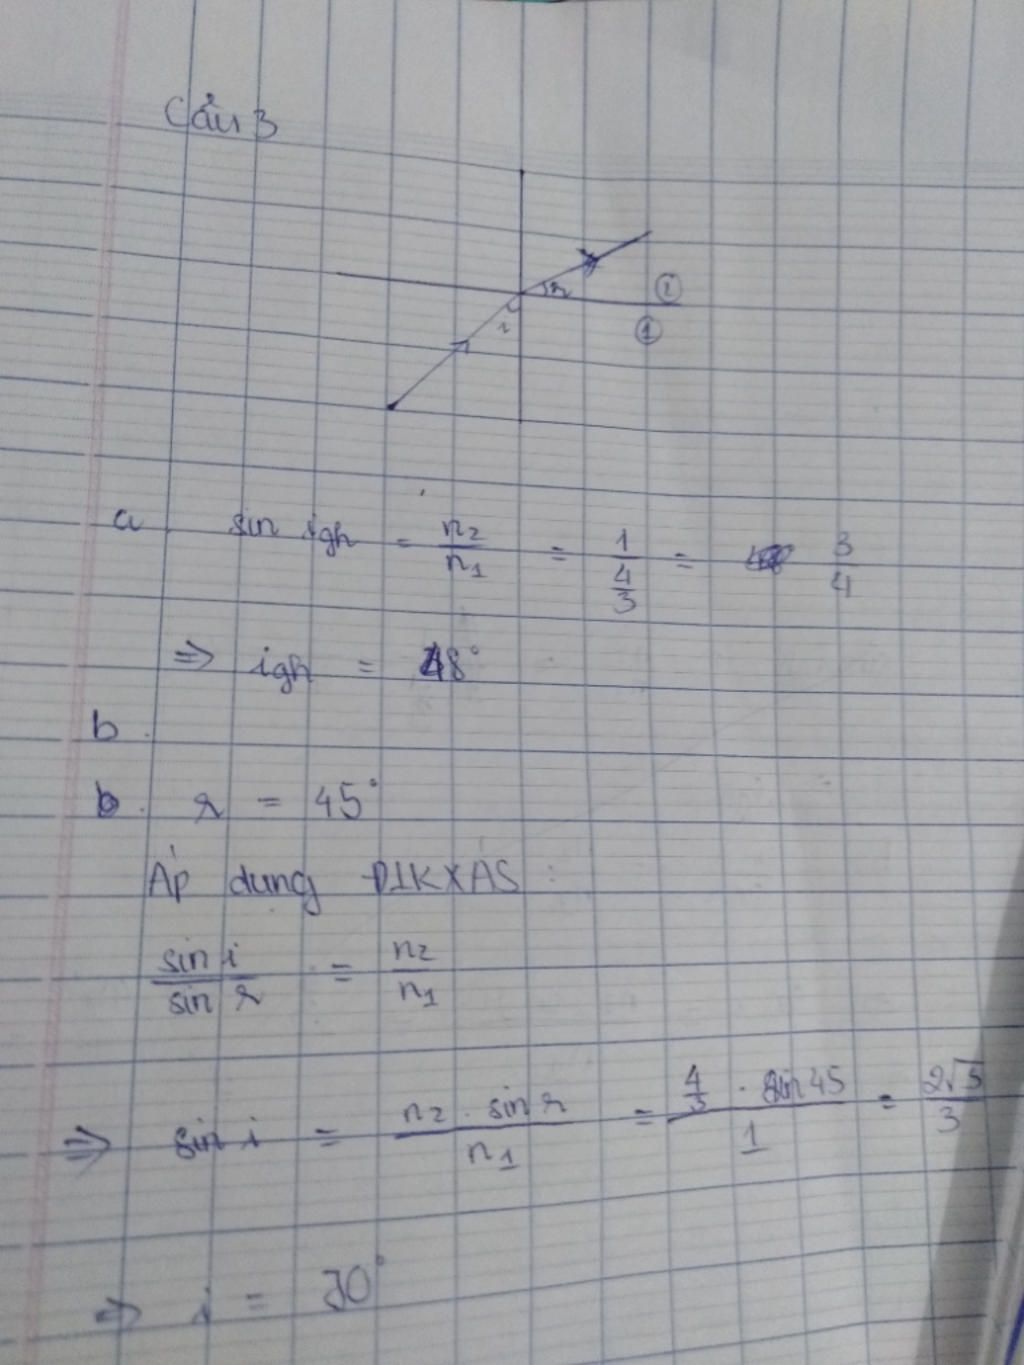 Câu 3
r
②
i
①
a. sin igh = n2/n1 = 1/(4/3) = 3/4
⇒ igh = 48°
b.
b. r = 45°
Áp dụng ĐLKXAS :
sin i / sin r = n2/n1
⇒ sin i = (n2 . sin r)/n1 = (4/3 . sin 45)/1 = 2√3/3
⇒ i =